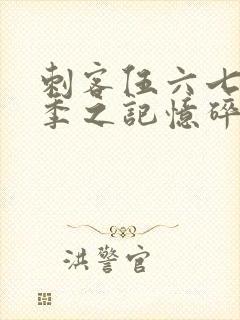 刺客伍六七
季之記憶碎
洪警官